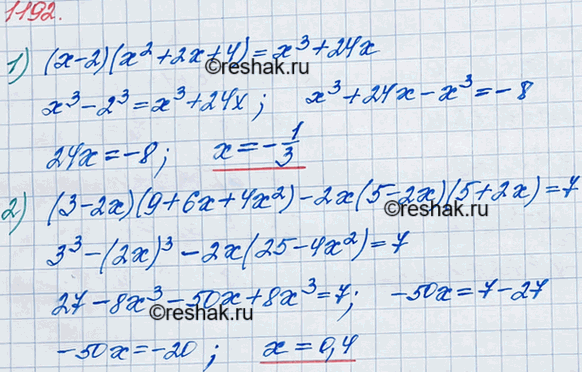 1192.
1) (x-2)(x²+2x+4)=x³+24x
©reshak.ru
x³-2³=x³+24x; x³+24x-x³=-8
24x=-8; x=-1/3
©reshak.ru
2) (3-2x)(9+6x+4x²)-2x(5-2x)(5+2x)=7
©reshak.ru
3³-(2x)³-2x(25-4x²)=7
27-8x³-50x+8x³=7; -50x=7-27
©reshak.ru
-50x=-20; x=0,4
©reshak.ru